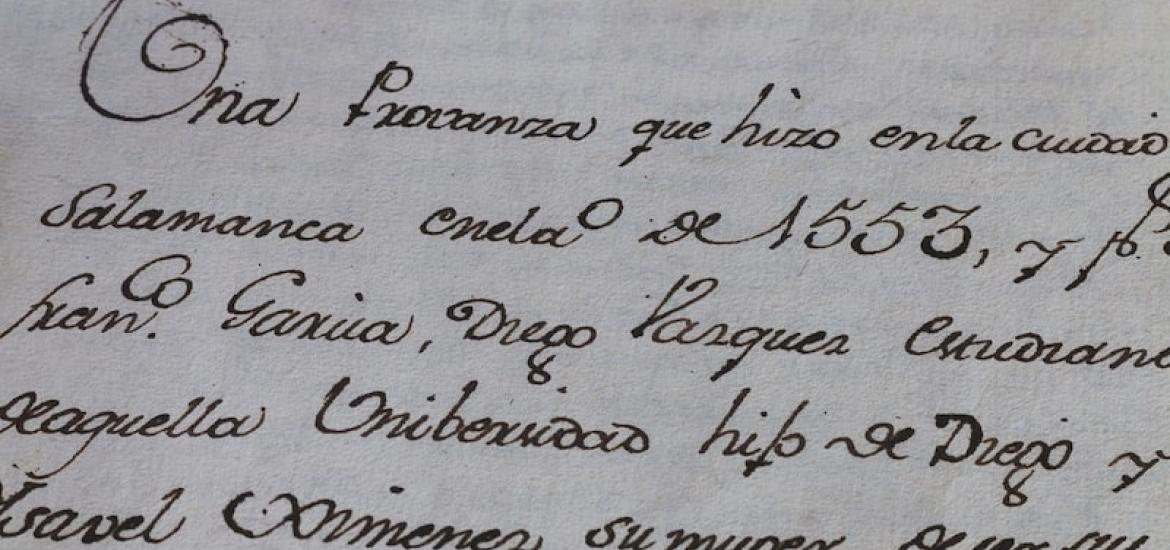 Una Provanza que hizo enla ciudad
Salamanca enel aº de 1553, y
franᶜᵒ. Garcia, Diego Vazquez Estudian
deaquella Unibersidad hijo de Diego y
Ysavel Ximenez su muger